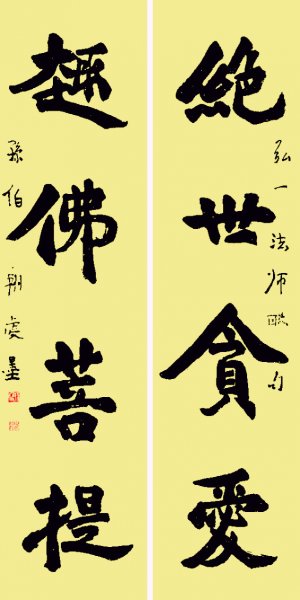 絕世貪愛
弘一法师联句
趣佛菩提
孫伯翔虔墨